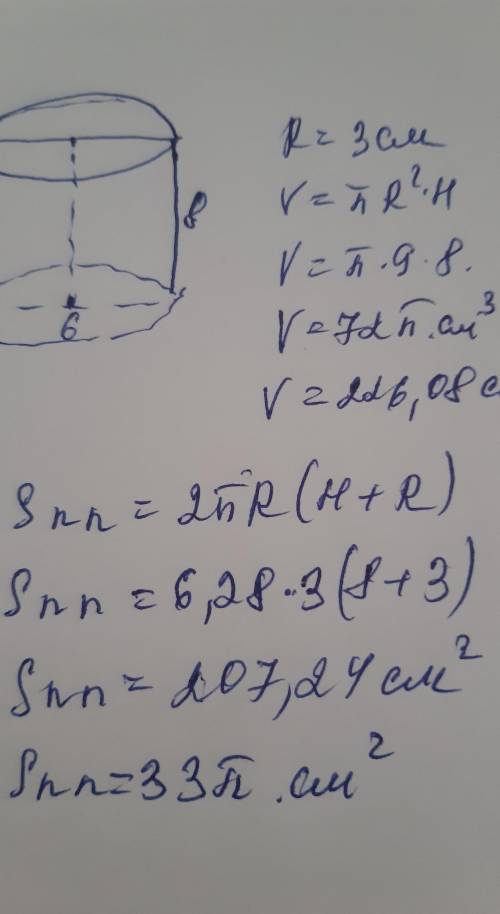 R = 3 см
8
V = π R² · H
V = π · 9 · 8.
6
V = 72 π . см³
V = 226,08 с
Sпп = 2πR (H + R)
Sпп = 6,28 · 3 (8 + 3)
Sпп = 207,24 см²
Sпп = 33 π . см²